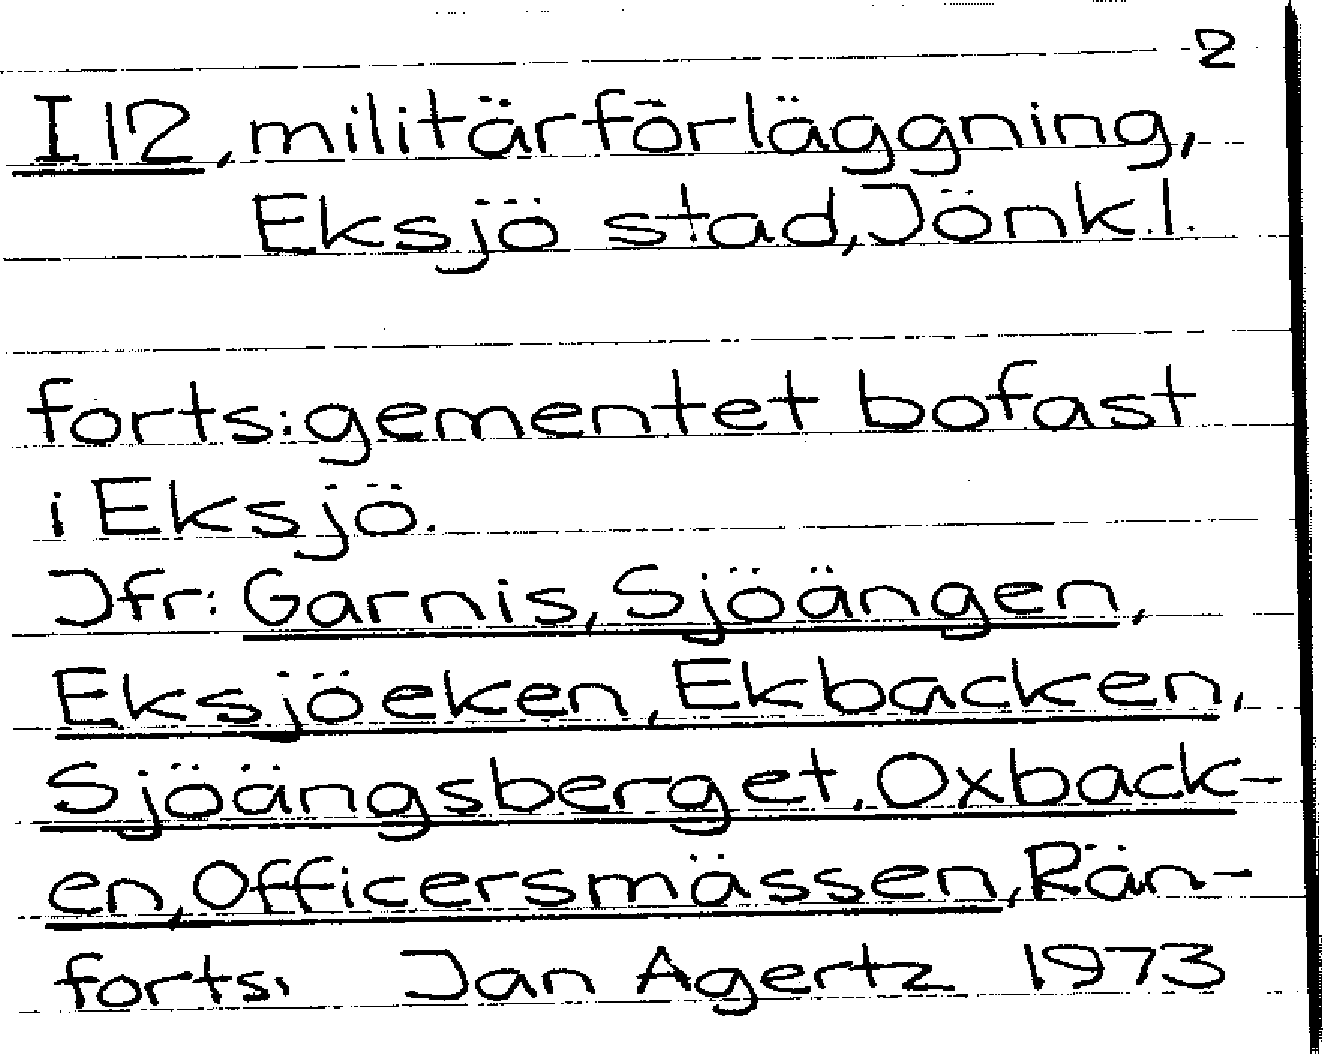 2
I 12, militärförläggning,
Eksjö stad, Jönk.l.
forts: gementet bofast
i Eksjö.
Jfr: Garnis, Sjöängen,
Eksjöeken, Ekbacken,
Sjöängsberget, Oxback-
en, Officersmässen, Rän-
forts. Jan Agertz 1973